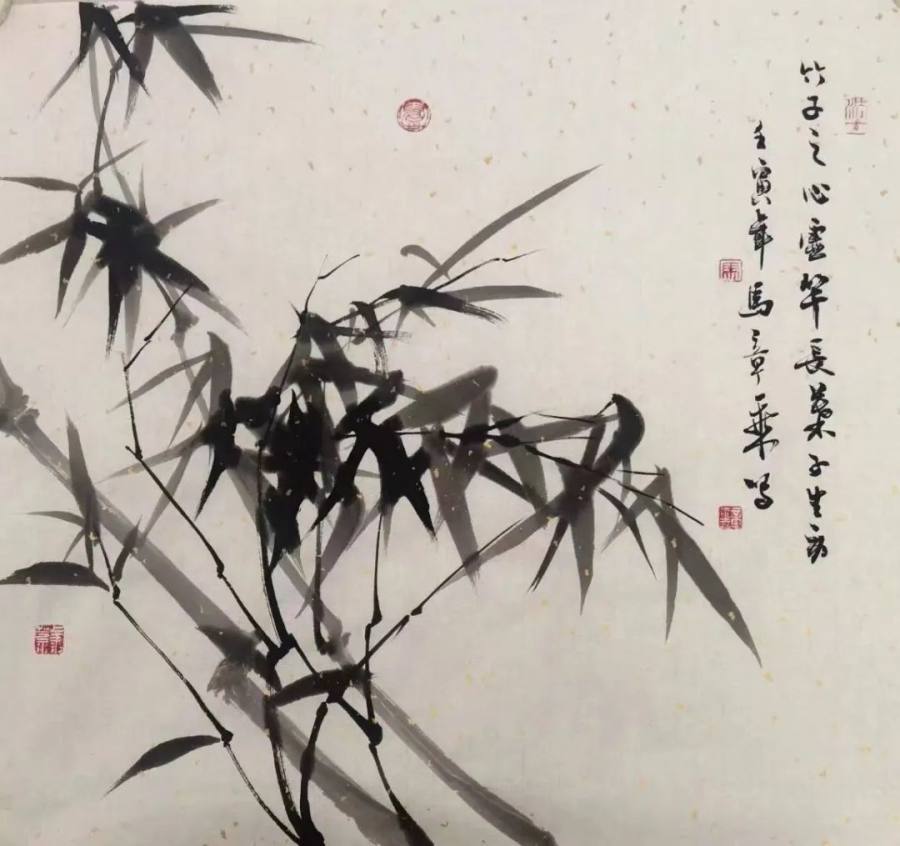 竹子之心虛竿長葉子生
壬寅年馬章乘寫